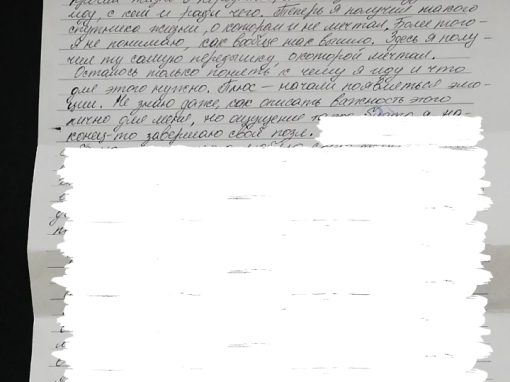 му, с кем и ради чего. Теперь я получил такого
спутника жизни, о котором и не мечтал. Более того -
я не понимаю, как вообще так вышло. Здесь я полу-
чил ту самую передышку, о которой мечтал.
Осталось только понять, к чему я иду и что
для этого нужно. Плюс - начали появляться эмо-
ции. Не знаю даже, как описать важность этого
лично для меня, но ощущение я на-
конец-то завершаю свой